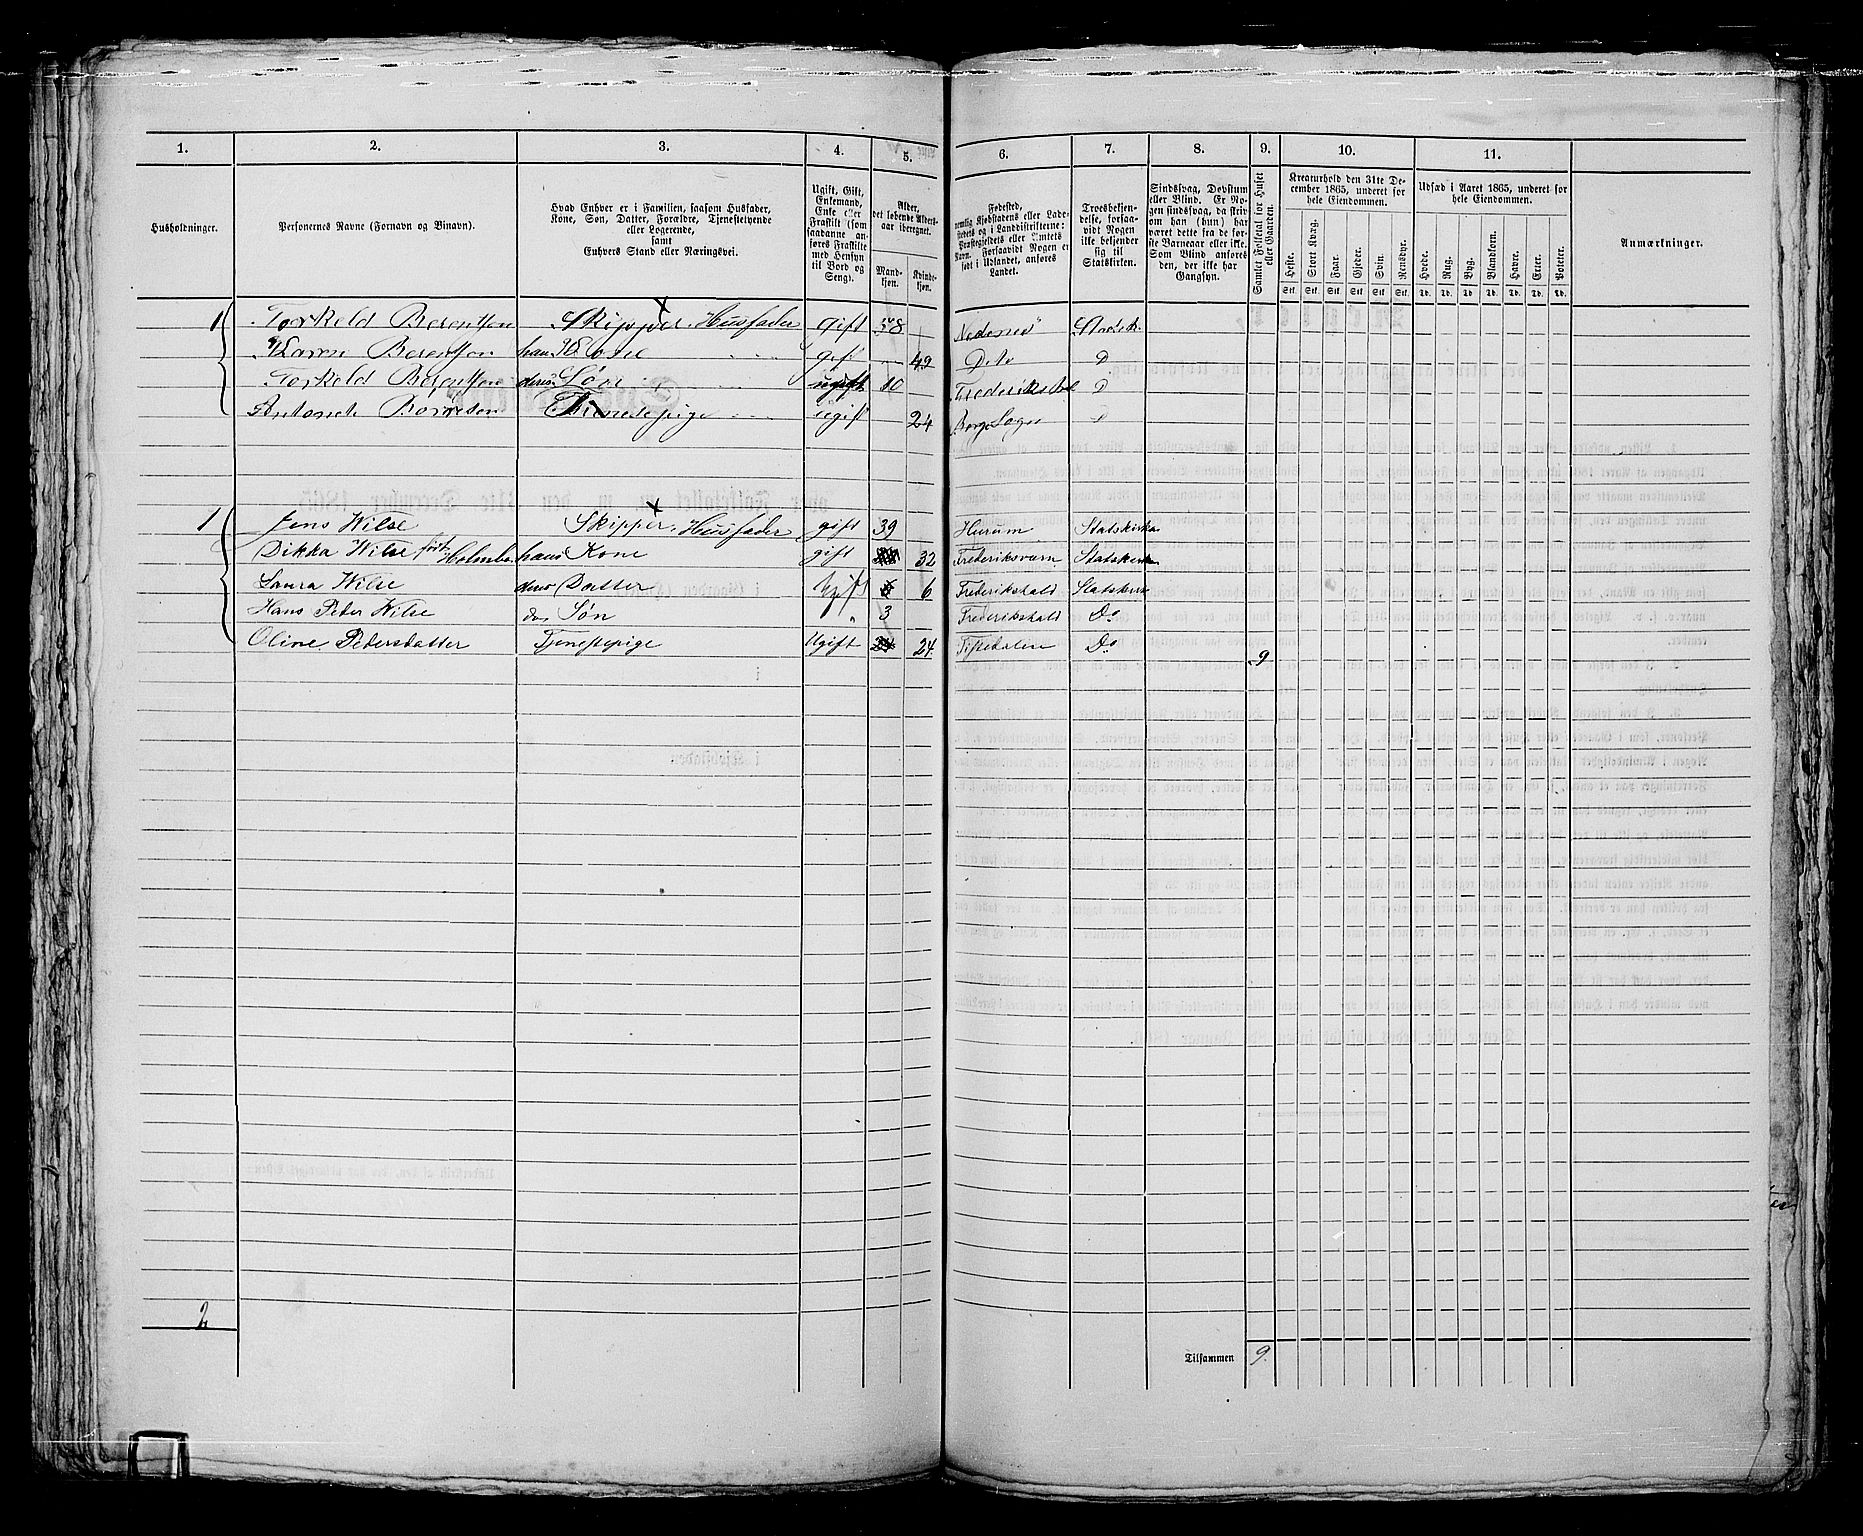 1. 2. 3. 4. 5. 6. 7. 8. 9. 10. 11.
Husholdninger.
Personernes Navne (Fornavn og Binavn).
Hvad Enhver er i Familien, saasom Husfader,
Kone, Søn, Datter, Forældre, Tjenestetyende
eller Logerende,
samt
Enhvers Stand eller Næringsvei.
Ugift, Gift,
Enkemand,
Enke eller
Fraskilt (som
saadanne an-
føres Fraskilte
med Hensyn
til Bord og
Seng).
Alder,
det løbende Alders-
aar iberegnet.
Mand-
kjøn.
Kvinde-
kjøn.
Fødested,
nemlig Kjøbstadens eller Lade-
stedets og i Landdistrikterne:
Præstegjeldets eller Amtets
Navn. Forsaavidt Nogen er
født i Udlandet, anføres
Landet.
Troesbekjen-
delse, forsaa-
vidt Nogen
ikke bekjender
sig til
Statskirken.
Sindssvag, Døvstum
eller Blind. Er No-
gen sindssvag, da skriv
om han (hun) har
været dette fra de før-
ste Barneaar eller ikke.
Som Blind anføres
den, der ikke har
Gangsyn.
Samlet Folketal for Huset
eller Gaarden.
Kreaturhold den 31te De-
cember 1865, underet for
hele Eiendommen.
Heste. Stort Kvæg. Faar. Gjeder. Svin. Rensdyr.
Stk. Stk. Stk. Stk. Stk. Stk.
Udsæd i Aaret 1865, underet for
hele Eiendommen.
Hvede. Rug. Byg. Blandkorn. Havre. Erter. Poteter.
Td. Td. Td. Td. Td. Td. Td.
Anmærkninger.
1 Torkeld Berentsen Skipper, Husfader gift 58 Nedenes Statsk.
Karen Berentsen hans Kone gift 49 Dito D
Torkeld Berentsen deres Søn ugift 10 Frederikshal D
Tienestepige ugift 24 Borge Sogn D
1 Jens Wilse Skipper, Husfader gift 39 Hurum Statskirke
Dikka Wilse født Holmbo hans Kone gift 32 Frederiksværn Statskirke
Laura Wilse deres Datter Ugift 6 Frederikshald Statskirke
Hans Peder Wilse do Søn " 3 Frederikshald Do
Oline Pedersdatter Tjenestepige Ugift 24 24. Tistedalen Do
9
2
Tilsammen 9.